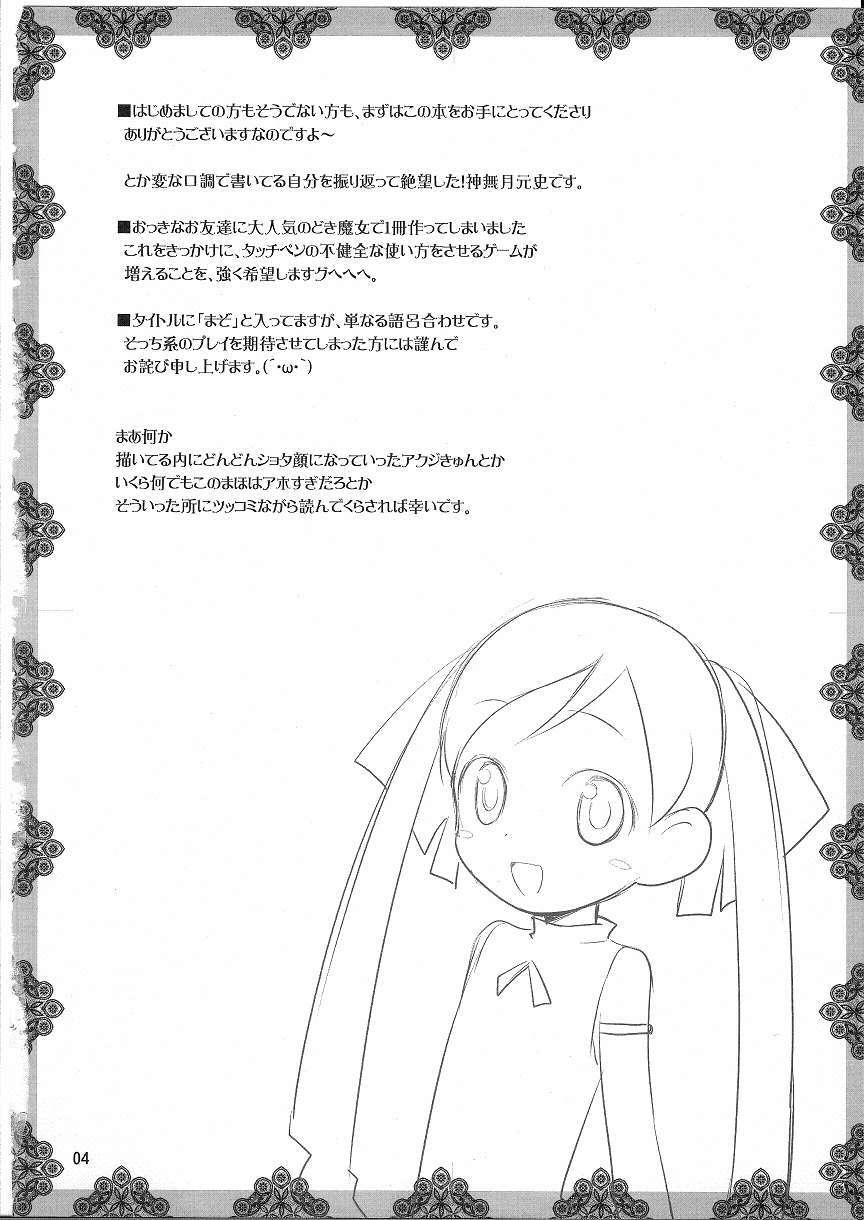 ■はじめましての方もそうでない方も、まずはこの本をお手にとってくださり
ありがとうございますなのですよ～
とか変な口調で書いてる自分を振り返って絶望した!神無月元史です。
■おっきなお友達に大人気のどき魔女で1冊作ってしまいました
これをきっかけに、タッチペンの不健全な使い方をさせるゲームが
増えることを、強く希望しますグへへへ。
■タイトルに「まぞ」と入ってますが、単なる語呂合わせです。
そっち系のプレイを期待させてしまった方には謹んで
お詫び申し上げます。(´・ω・`)
まあ何か
描いてる内にどんどんショタ顔になっていったアクジきゅんとか
いくら何でもこのまほはアホすぎだろとか
そういった所にツッコミながら読んでくらされば幸いです。
04